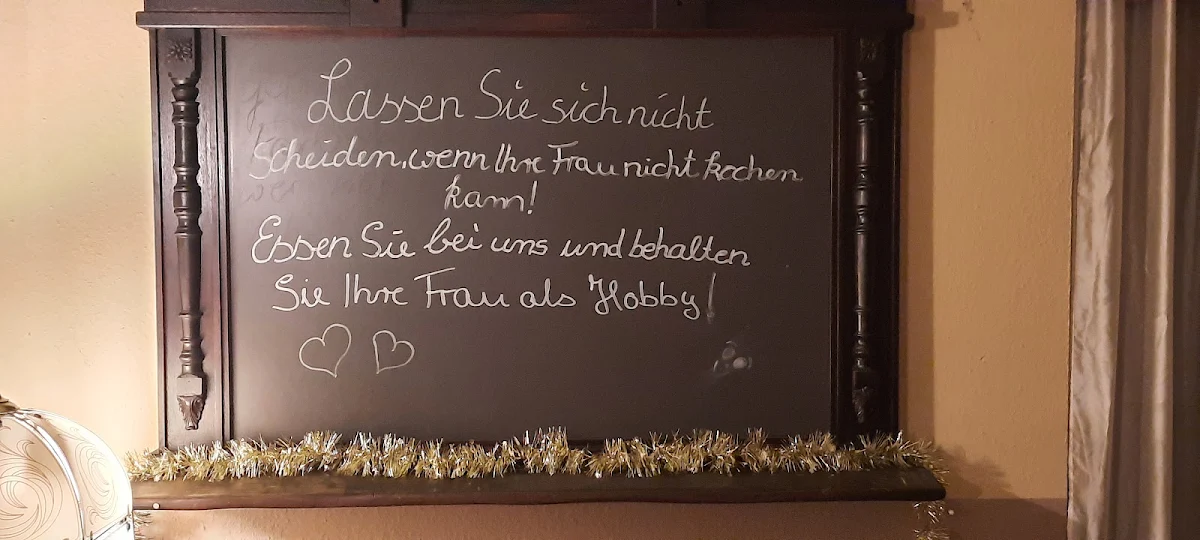 Lassen Sie sich nicht
scheiden, wenn Ihre Frau nicht kochen
kann!
Essen Sie bei uns und behalten
Sie Ihre Frau als Hobby!